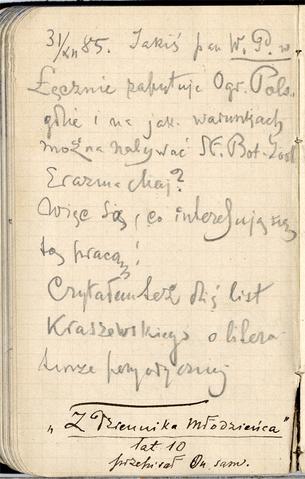 31/XII 85. Jakiś pan W. P. w
Łęcznie zapytuje Ogr. Pols.
gdzie i na jak. warunkach
można nabywać St. Bot-Zool
Erazma Maj?
Więc są, co interesują się
tą pracą!
Czytałem też dziś list
Kraszewskiego o litera-
turze peryodycznej
„Z Dziennika Młodzieńca"
lat 10
przepisał On sam.